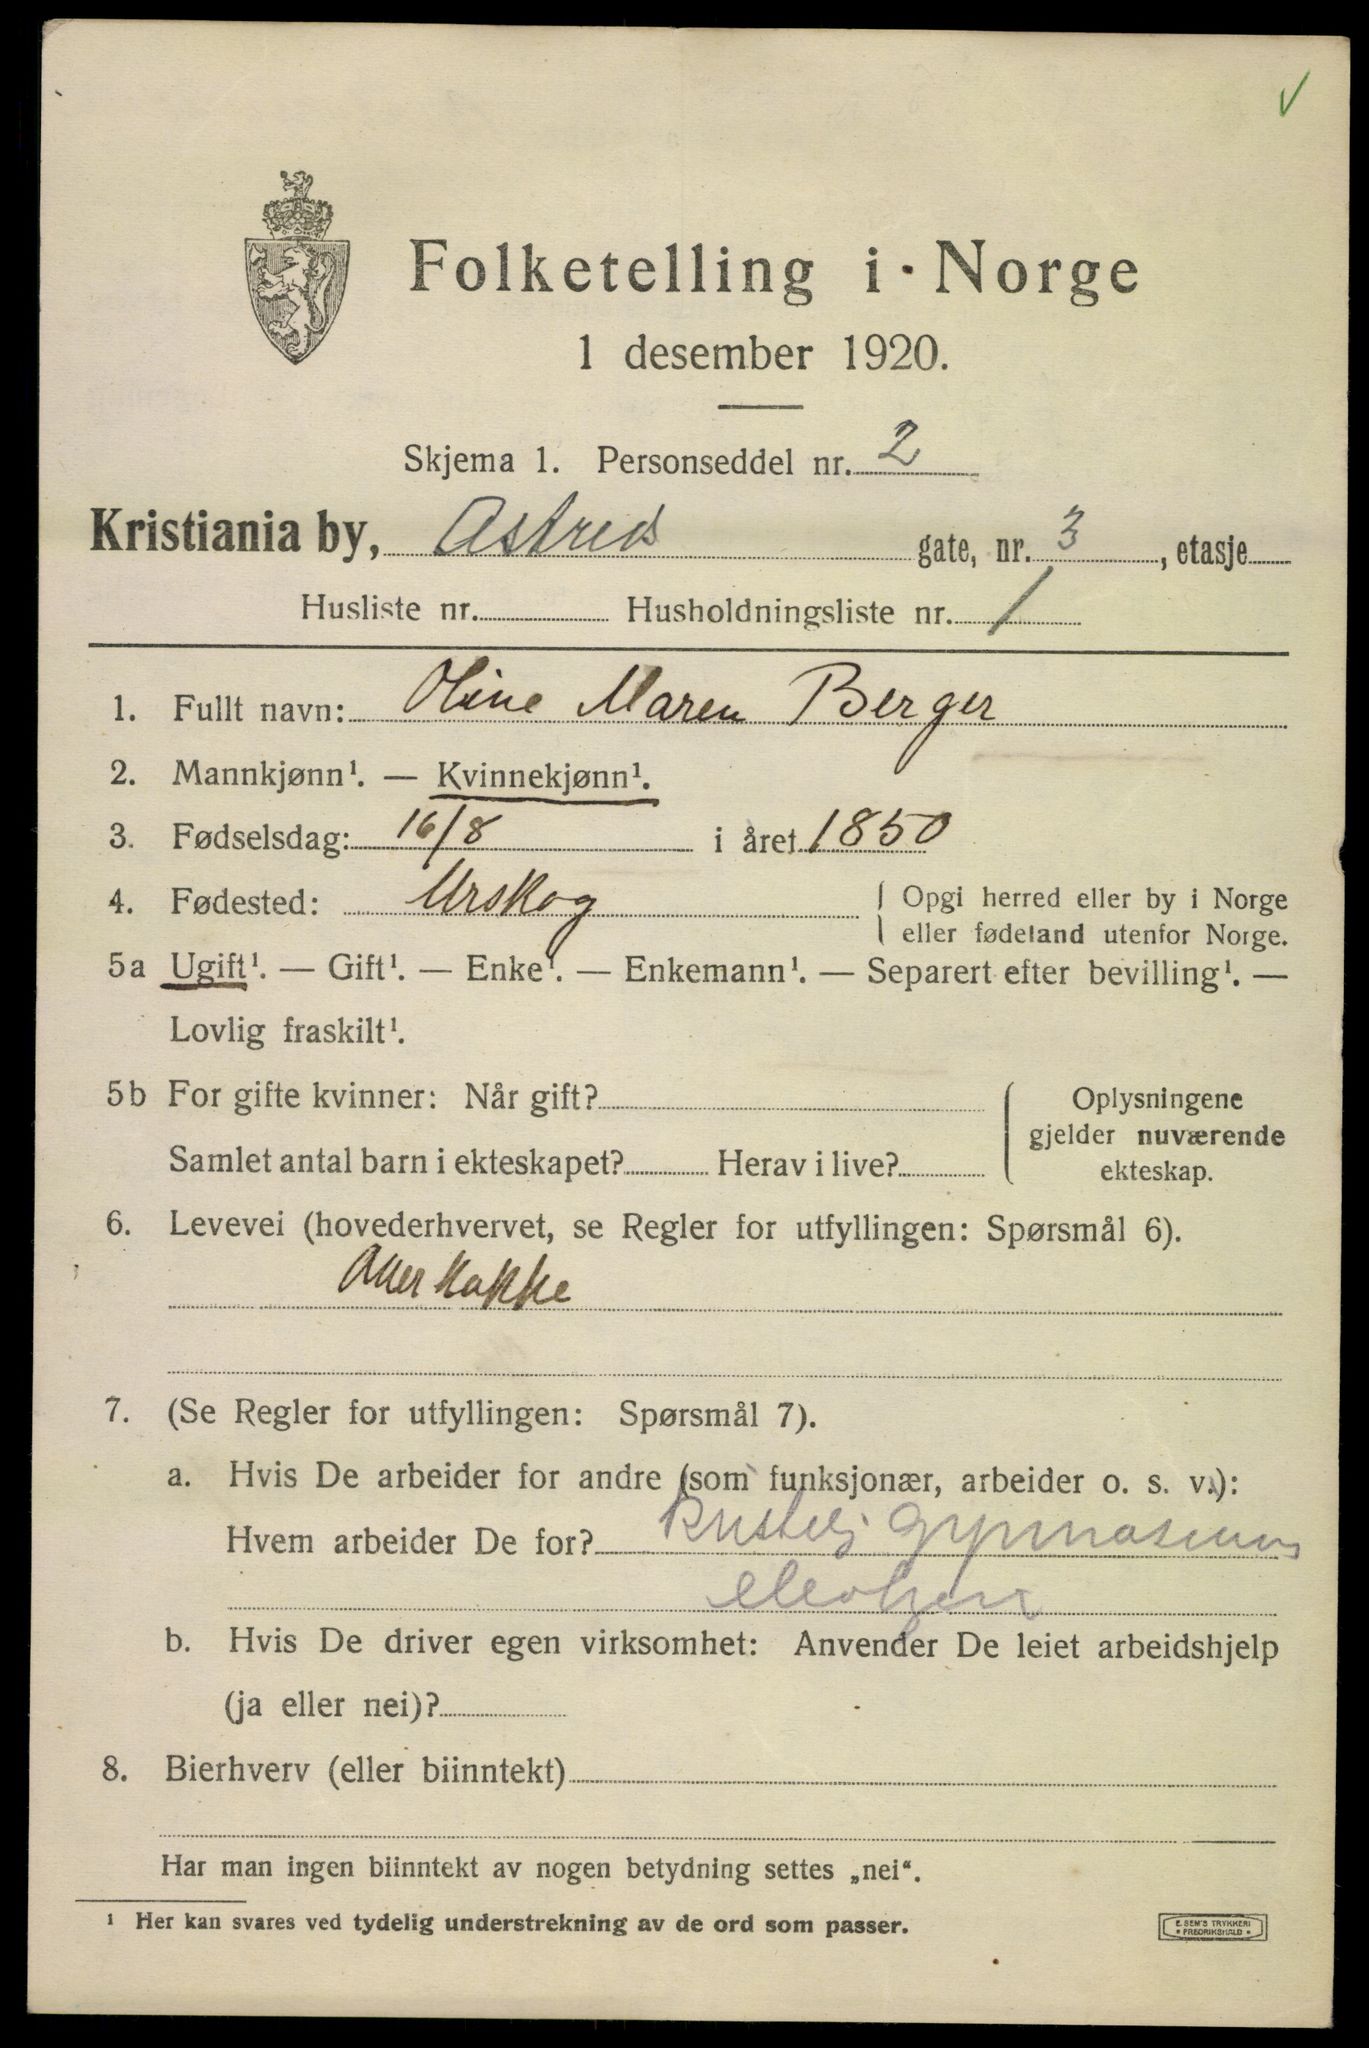 Folketelling i Norge
1 desember 1920.
Skjema 1. Personseddel nr. 2
Kristiania by, Astrids gate, nr. 3, etasje
Husliste nr. Husholdningsliste nr. 1
1. Fullt navn: Oline Maren Berger
2. Mannkjønn¹. — Kvinnekjønn¹.
3. Fødselsdag: 16/8 i året 1850
4. Fødested: Urskog
Opgi herred eller by i Norge
eller fødeland utenfor Norge.
5a Ugift¹. — Gift¹. — Enke¹. — Enkemann¹. — Separert efter bevilling¹. —
Lovlig fraskilt¹.
5b For gifte kvinner: Når gift?
Samlet antal barn i ekteskapet? Herav i live?
Oplysningene
gjelder nuværende
ekteskap.
6. Levevei (hovederhvervet, se Regler for utfyllingen: Spørsmål 6).
7. (Se Regler for utfyllingen: Spørsmål 7).
a. Hvis De arbeider for andre (som funksjonær, arbeider o. s. v.):
Hvem arbeider De for? Kristelig Gymnasium
b. Hvis De driver egen virksomhet: Anvender De leiet arbeidshjelp
(ja eller nei)?
8. Bierhverv (eller biinntekt)
Har man ingen biinntekt av nogen betydning settes „nei“.
¹ Her kan svares ved tydelig understrekning av de ord som passer.
E. SEM'S TRYKKERI
* FREDRIKSHALD *